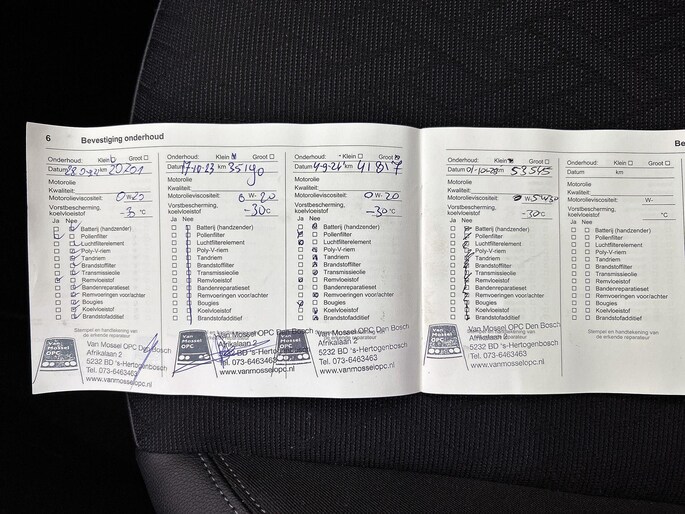 6 Bevestiging onderhoud
Onderhoud: Klein Groot
Datum km 20201
Motorolie
Kwaliteit:
Motorolieviscositeit: 0W20
Vorstbescherming,
koelvloeistof -30 °C
Ja Nee
Batterij (handzender)
Pollenfilter
Luchtfilterelement
Poly-V-riem
Tandriem
Brandstoffilter
Transmissieolie
Remvloeistof
Bandenreparatieset
Remvoeringen voor/achter
Bougies
Koelvloeistof
Brandstofadditief
Stempel en handtekening van
de erkende reparateur
Van Mossel OPC
Van Mossel OPC Den Bosch
Afrikalaan 2
5232 BD 's-Hertogenbosch
Tel. 073-6463463
www.vanmosselopc.nl
Onderhoud: Klein Groot
Datum 17-10-23 km 35190
Motorolie
Kwaliteit:
Motorolieviscositeit: 0W-20
Vorstbescherming,
koelvloeistof -30°C
Ja Nee
Batterij (handzender)
Pollenfilter
Luchtfilterelement
Poly-V-riem
Tandriem
Brandstoffilter
Transmissieolie
Remvloeistof
Bandenreparatieset
Remvoeringen voor/achter
Bougies
Koelvloeistof
Brandstofadditief
Van Mossel OPC
Van Mossel OPC Den Bosch
Afrikalaan 2
5232 BD 's-Hertogenbosch
Tel. 073-6463463
www.vanmosselopc.nl
Onderhoud: Klein Groot
Datum 4-9-24 km 41817
Motorolie
Kwaliteit:
Motorolieviscositeit: 0W-20
Vorstbescherming,
koelvloeistof -30°C
Ja Nee
Batterij (handzender)
Pollenfilter
Luchtfilterelement
Poly-V-riem
Tandriem
Brandstoffilter
Transmissieolie
Remvloeistof
Bandenreparatieset
Remvoeringen voor/achter
Bougies
Koelvloeistof
Brandstofadditief
Van Mossel OPC
Van Mossel OPC Den Bosch
Afrikalaan 2
5232 BD 's-Hertogenbosch
Tel. 073-6463463
www.vanmosselopc.nl
Be
Onderhoud: Klein Groot
Datum km 53545
Motorolie
Kwaliteit:
Motorolieviscositeit:
Vorstbescherming,
koelvloeistof -30°C
Ja Nee
Batterij (handzender)
Pollenfilter
Luchtfilterelement
Poly-V-riem
Tandriem
Brandstoffilter
Transmissieolie
Remvloeistof
Bandenreparatieset
Remvoeringen voor/achter
Bougies
Koelvloeistof
Brandstofadditief
Van Mossel OPC
Van Mossel OPC Den Bosch
Afrikalaan 2
5232 BD 's-Hertogenbosch
Tel. 073-6463463
www.vanmosselopc.nl
Onderhoud: Klein Groot
Datum km
Motorolie
Kwaliteit:
Motorolieviscositeit: W-
Vorstbescherming,
koelvloeistof °C
Ja Nee
Batterij (handzender)
Pollenfilter
Luchtfilterelement
Poly-V-riem
Tandriem
Brandstoffilter
Transmissieolie
Remvloeistof
Bandenreparatieset
Remvoeringen voor/achter
Bougies
Koelvloeistof
Brandstofadditief
Stempel en handtekening van
de erkende reparateur